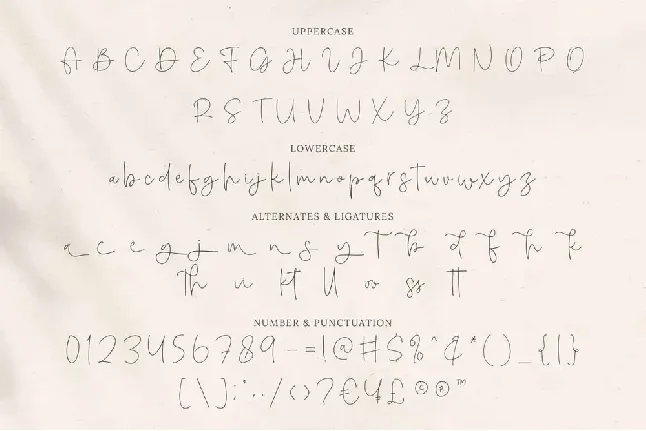 UPPERCASE
A B C D E F G H I J K L M N O P Q
R S T U V W X Y Z
LOWERCASE
a b c d e f g h i j k l m n o p q r s t u v w x y z
ALTERNATES & LIGATURES
a c e g j m n s y T b d f h k
Th u kt ll oo ss tt
NUMBER & PUNCTUATION
0 1 2 3 4 5 6 7 8 9 - = ! @ # $ % ^ ¢ * ( ) _ { | }
[ \ ] ; ' , . / < > ? € ¥ £ © ® ™